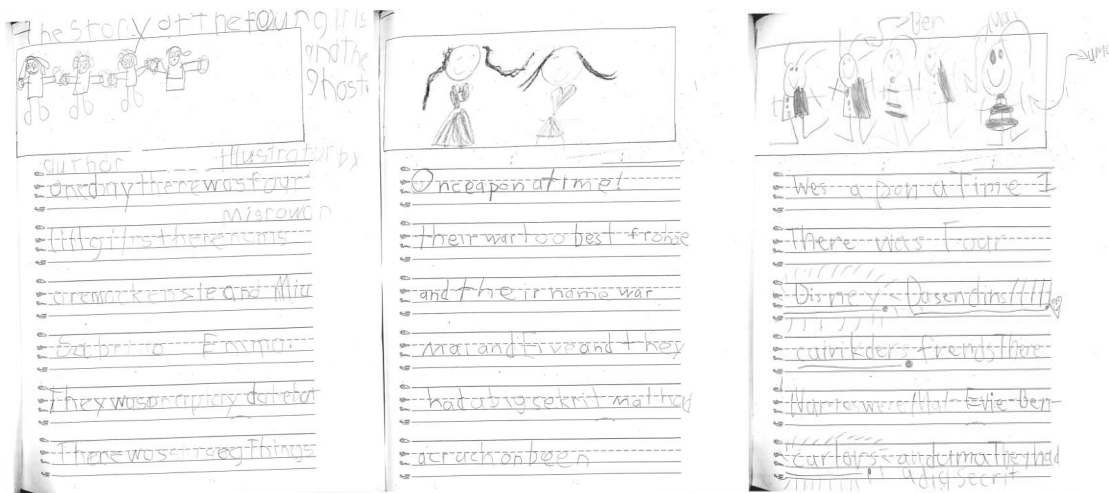 The story of the four girls
and the
ghost
author Illustrator by
one day there was four
Misrowar
littl gilrs there nams
are mackensie and Mia
Sabrina Emma.
They was
There was Things
Once apon a time!
their war too best
and their name war
Mal and Evie and they
had a big sekrit mal had
a crach on been
Ben
Mal
uma
Wos a pon a Time I
There was four
Disney Dasendins!!!!!
frends Thee
Nams were Mal Evie Ben
carlors and uma They had
a big secrit